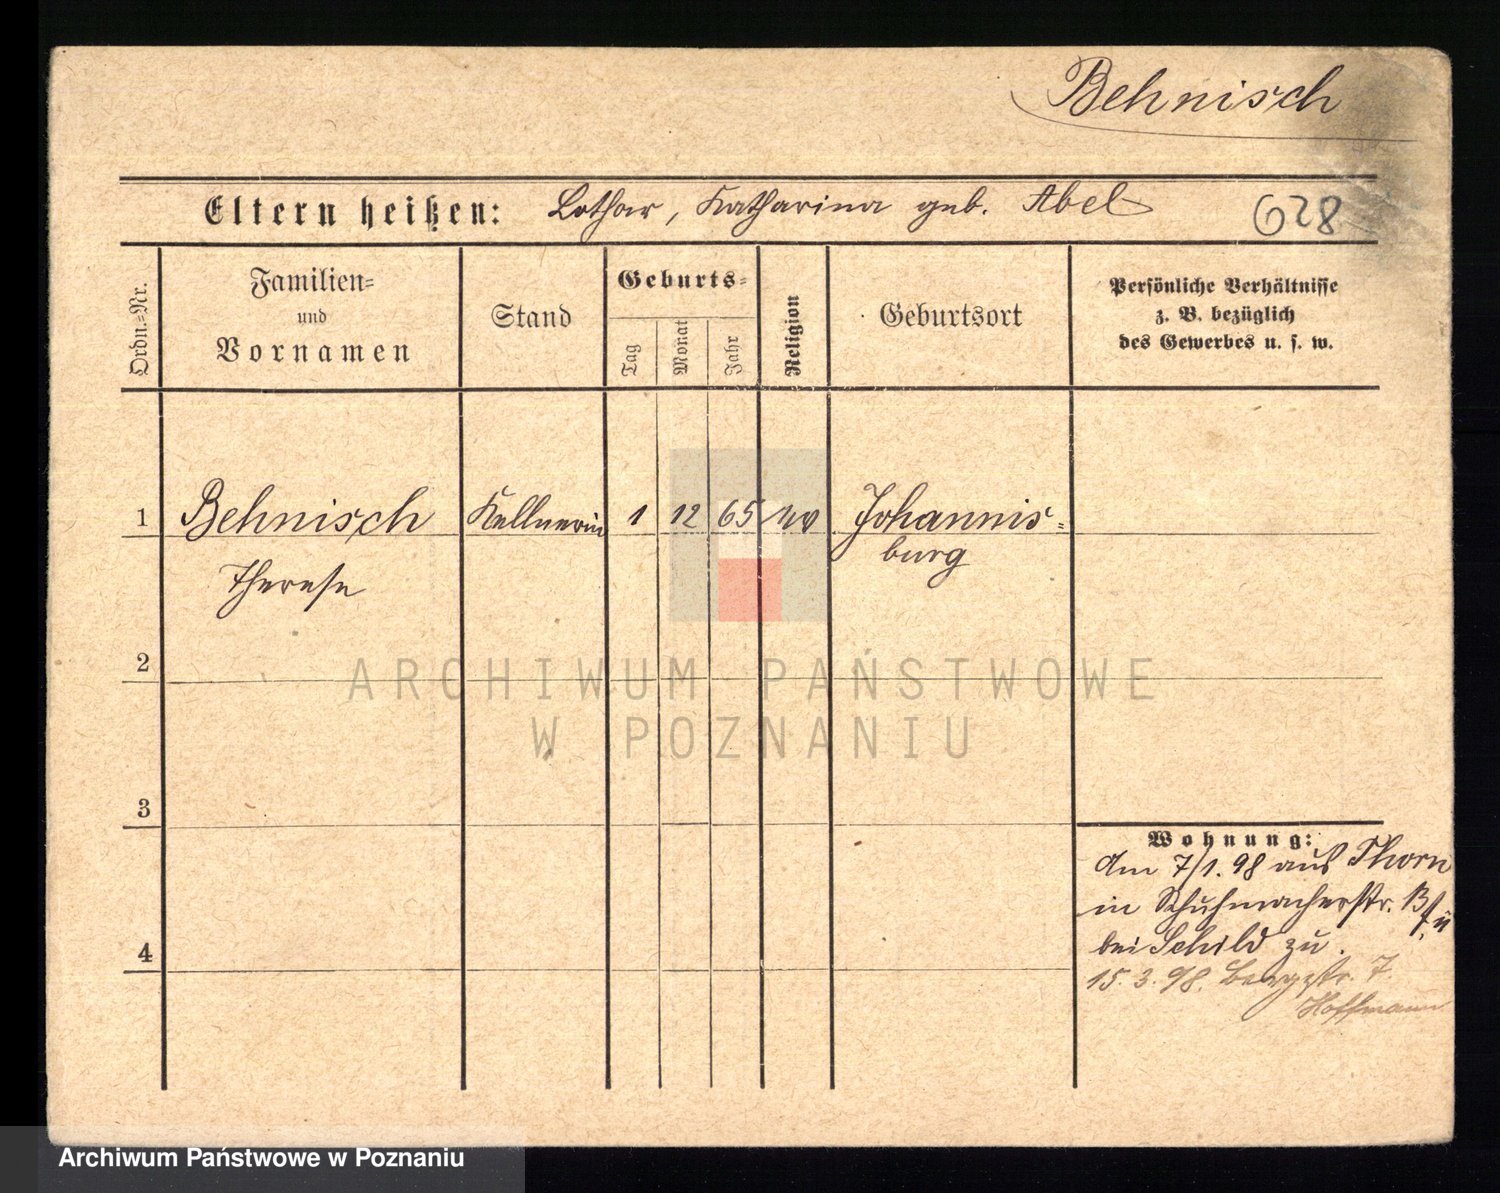 Behnisch
Eltern heißen: Lothar, Katharina geb. Abel
628
Ordn.-Nr.
Familien-
und
Vornamen
Stand
Geburts-
Tag
Monat
Jahr
Religion
Geburtsort
Persönliche Verhältnisse
z. B. bezüglich
des Gewerbes u. s. w.
1 Behnisch Kellnerin 1 12 65 Johannis-
Therese burg
2
3
4
ARCHIWUM PAŃSTWOWE
W POZNANIU
Wohnung:
Am 7/1. 98 aus Thorn
in Schuhmacherstr.
bei Schild zu.
15. 3. 98. Bergstr. 7.
Hoffmann
Archiwum Państwowe w Poznaniu